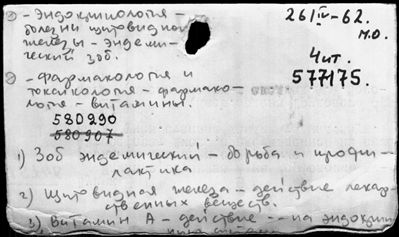 1) - Эндокринология -
болезни щитовидной
железы - эндеми-
ческий зоб.
26/IV-62.
м.о.
2) - фармакология и
токсикология - фармако-
логия - витамины.
Чит.
577175.
580290
580907
1) Зоб эндемический - борьба и профи-
лактика
2) Щитовидная железа - действие лекар-
ственных веществ.
3) Витамин А - действие - на эндокрин